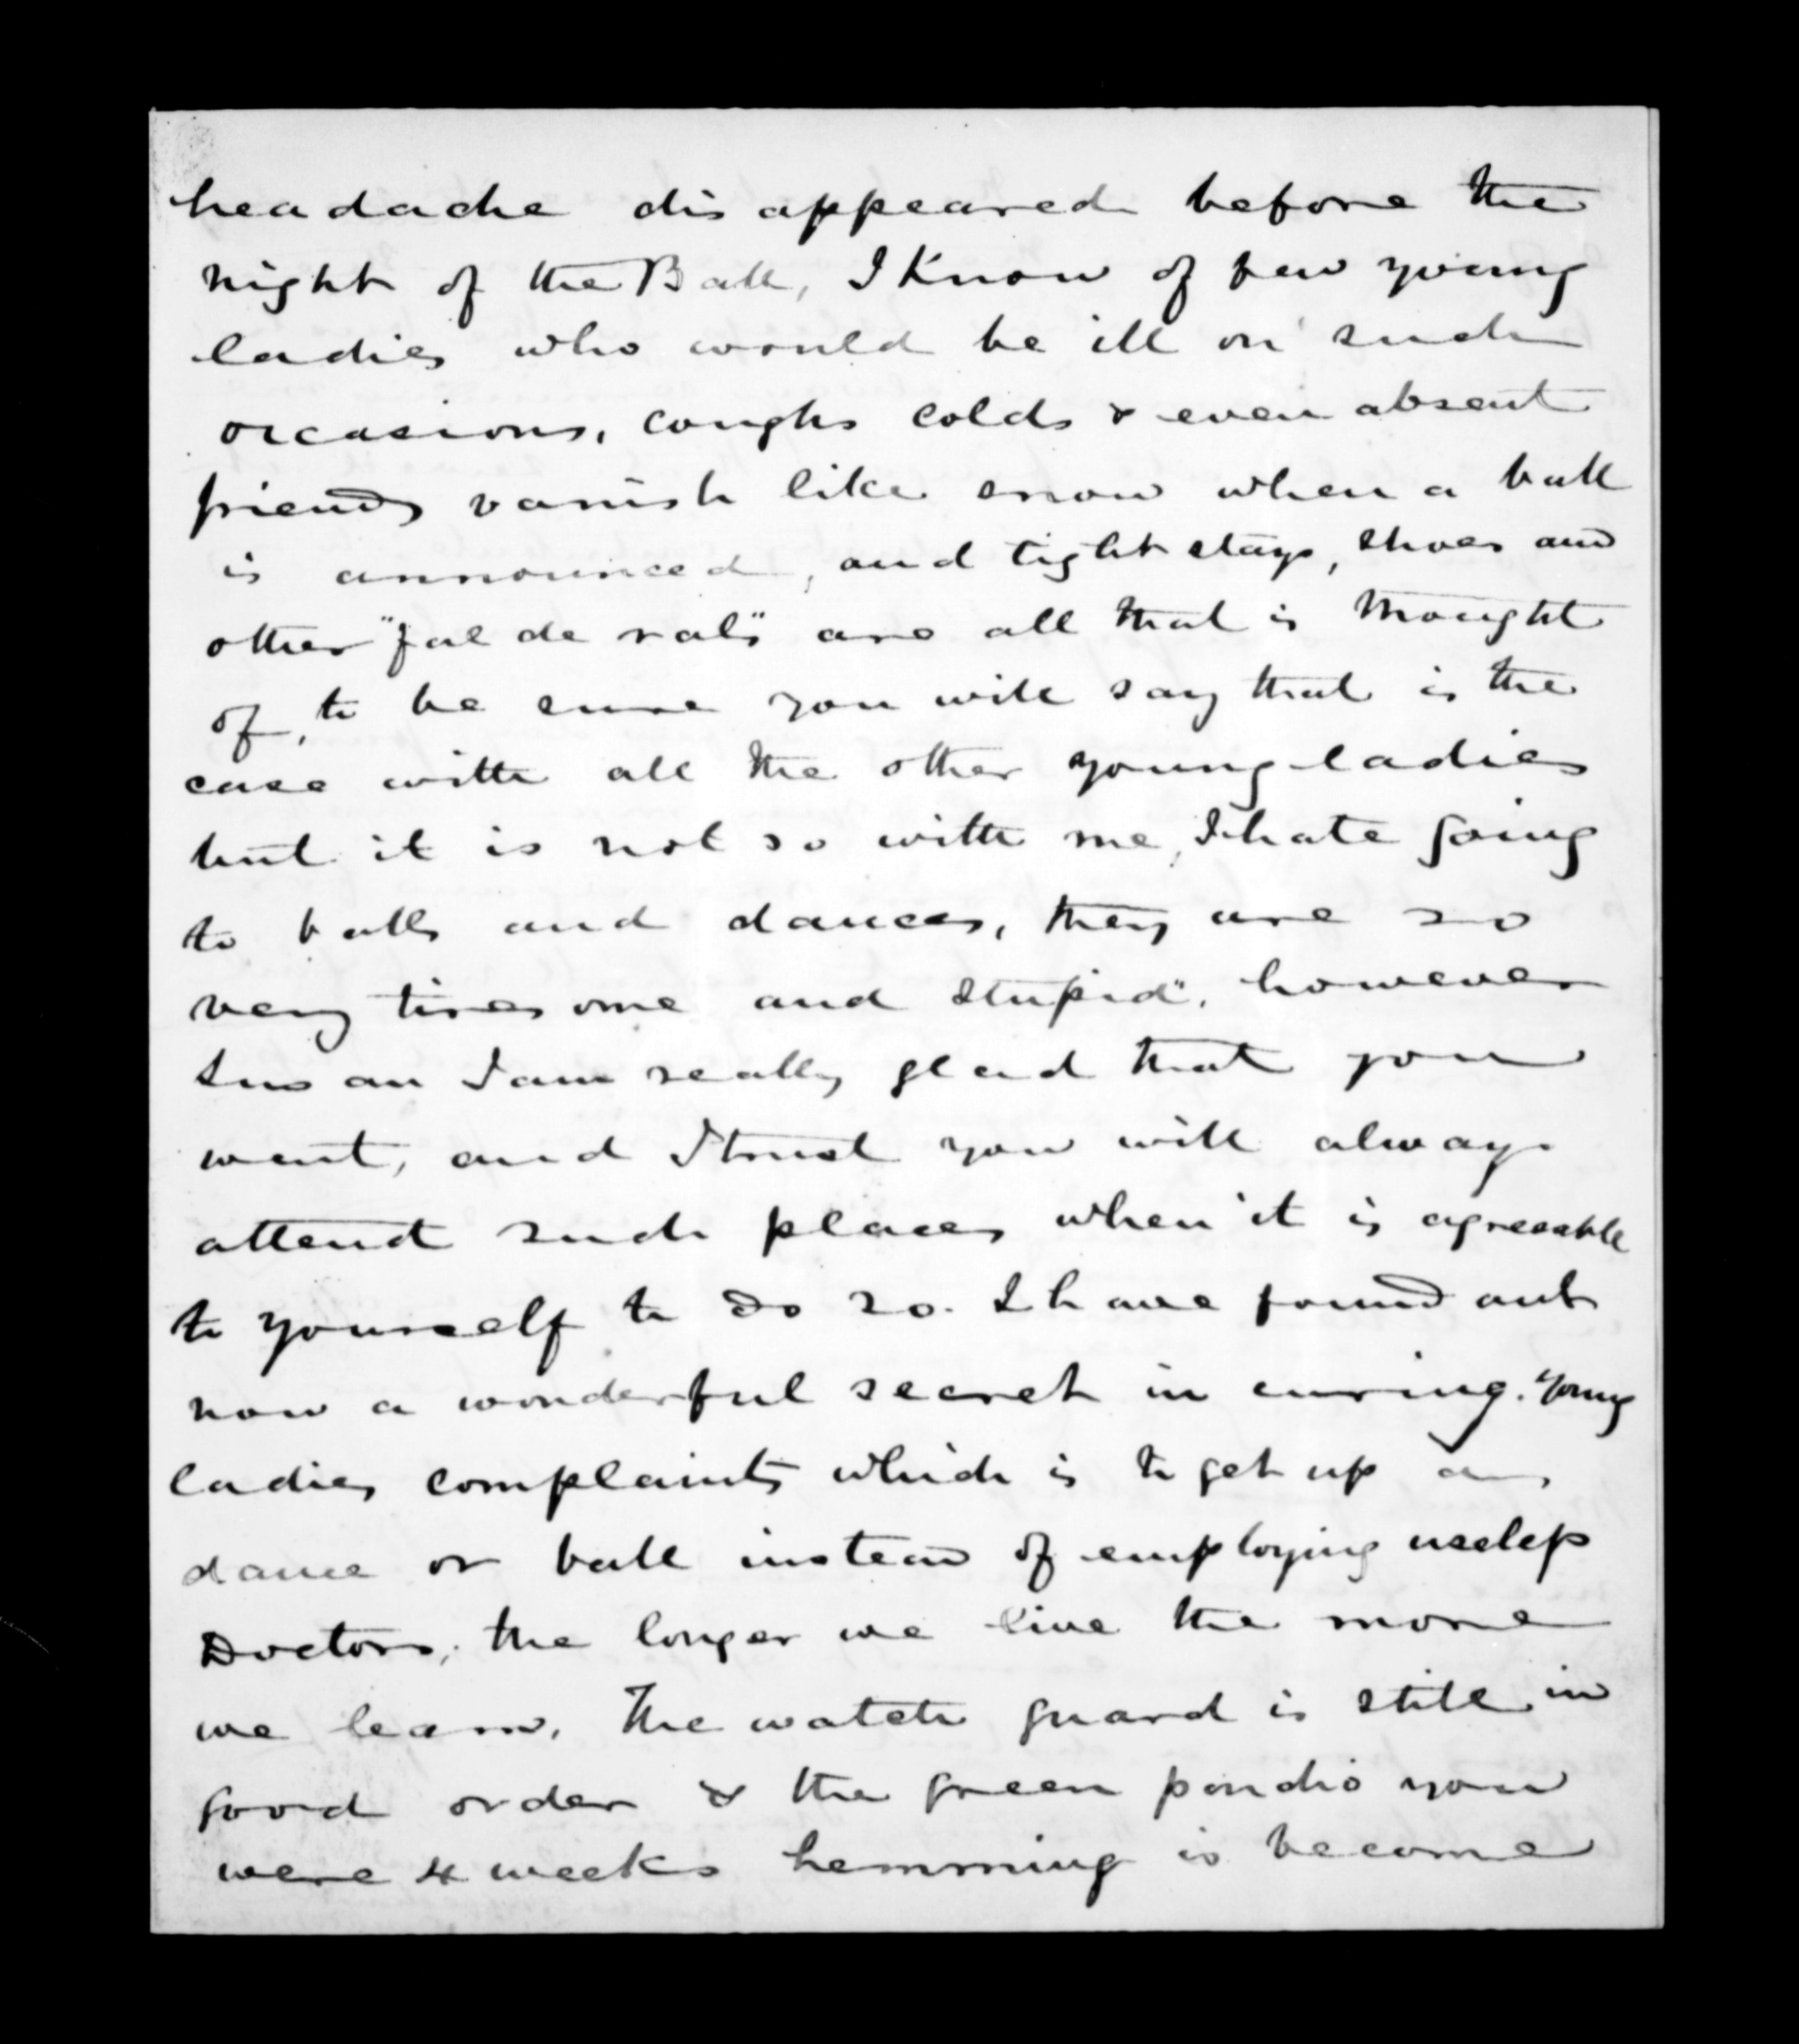 headache disappeared before the
night of the Ball, I Know of few young
ladies who would be ill on such
occasions, coughs colds & even absent
friends vanish like snow when a ball
is announced, and tight stays, shoes and
other "fal de rals" are all that is thought
of, to be sure you will say that is the
case with all the other young ladies
but it is not so with me, I hate going
to balls and dances, they are so
very tiresome and stupid", however
Susan I am really glad that you
went, and I trust you will always
attend such places when it is agreeable
to yourself to do so. I have found out
now a wonderful secret in curing young
ladies complaints which is to get up a
dance or ball instead of employing useless
Doctors, the longer we live the more
we learn. The watch guard is still in
good order & the green poncho you
were 4 weeks hemming is become